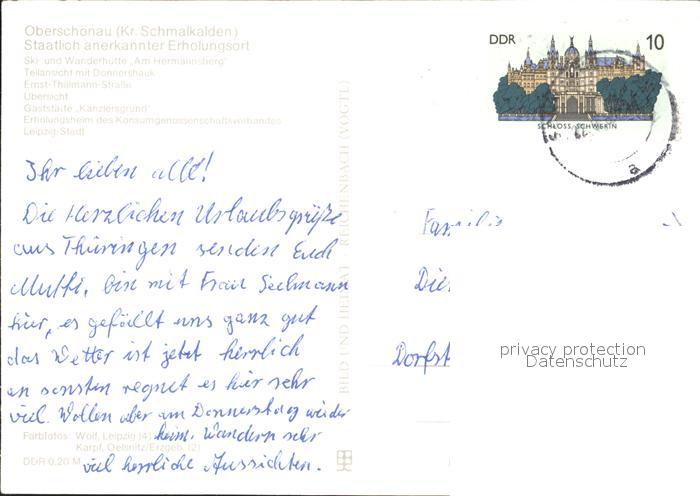 Oberschönau (Kr. Schmalkalden)
Staatlich anerkannter Erholungsort
Ski- und Wanderhütte „Am Hermannsberg“
Teilansicht mit Donnershauk
Ernst-Thälmann-Straße
Übersicht
Gaststätte „Kanzlersgrund“
Erholungsheim des Konsumgenossenschaftsverbandes
Leipzig-Stadt
DDR 10
SCHLOSS SCHWERIN
Ihr lieben alle!
Die Herzlichen Urlaubsgrüße
aus Thüringen senden Euch
Mutti, bin mit Frau Seelmann
hier, es gefällt uns ganz gut
das Wetter ist jetzt herrlich
an sonsten regnet es hier sehr
viel. Wollen aber am Donnerstag wieder
heim. Wandern sehr
viel herrliche Aussichten.
Farbfotos: Wolf, Leipzig (4)
Karpf, Oelsnitz/Erzgeb. (2)
DDR 0,20 M
BILD UND HEIMAT REICHENBACH (VOGTL)
Familie
Die
Dorfst
privacy protection
Datenschutz